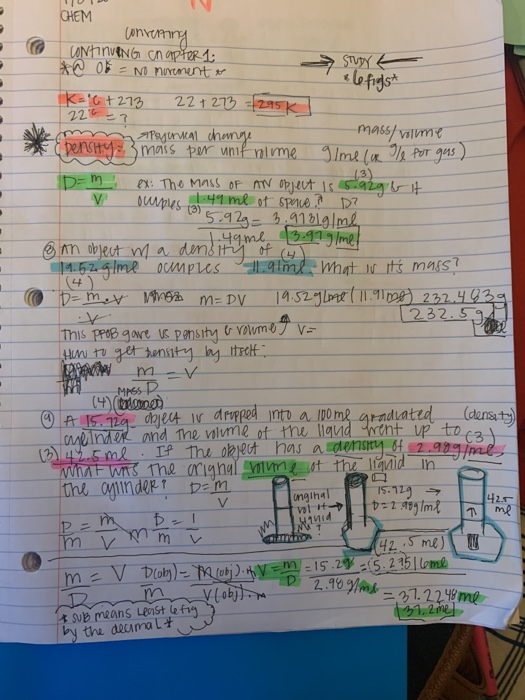 CHEM
converting
CONTINUING chapter 1:
*@ 0K = No movement *
→ STUDY ←
*sig figs*
K = °C + 273 22 + 273 = 295 K
22°C = ?
→Physical change mass/volume
Density: mass per unit volume g/mL (or g/L for gas)
D = m/V ex: The mass of AN object is 5.92g & it (3)
occupies 1.49 mL of space. D?
(3) 5.92g = 3.9731 g/mL
1.49mL 3.97 g/mL
An object w/ a density of (4)
19.52 g/mL occupies 11.91mL What is it's mass?
(4)
D = m · V m = DV 19.52 g/mL (11.91mL) 232.4832g
V 232.5g
This PROB gave us Density & volume V=
How to get Density by itself:
m/D = V
MASS
(4)
A 15.72g object is dropped into a 100mL graduated (density)
cylinder and the volume of the liquid went up to (3
(3) 42.5 mL. If the object has a density of 2.98g/mL,
What was the original volume of the liquid in
the cylinder? D = m/V
original
vol of
liquid
?
15.72g →
D = 2.98g/mL
42.5
mL
D/m = m/V m D/m = 1/V
(42.5 mL)
m/D = V D(obj) = m(obj) · m V = m/D = 15.2g = (5.27516mL
m V(obj) · m 2.98g/mL
= 37.2248mL
37.2mL
* SUB means least sig fig
by the decimal *